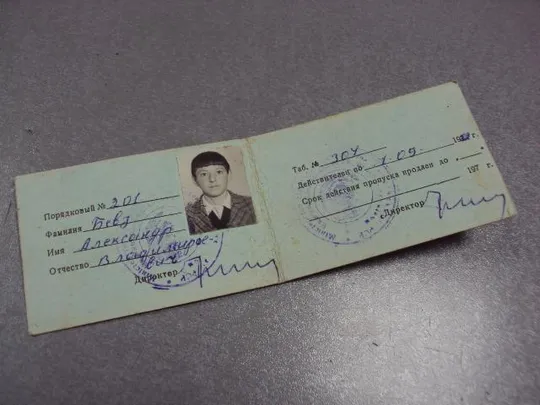 Порядковый № 201
Фамилия Бевз
Имя Александр
Отчество Владимиро-
вич
Директор
Таб. № 304
Действителен по 1.09. 197 г.
Срок действия пропуска продлен до
197 г.
Директор